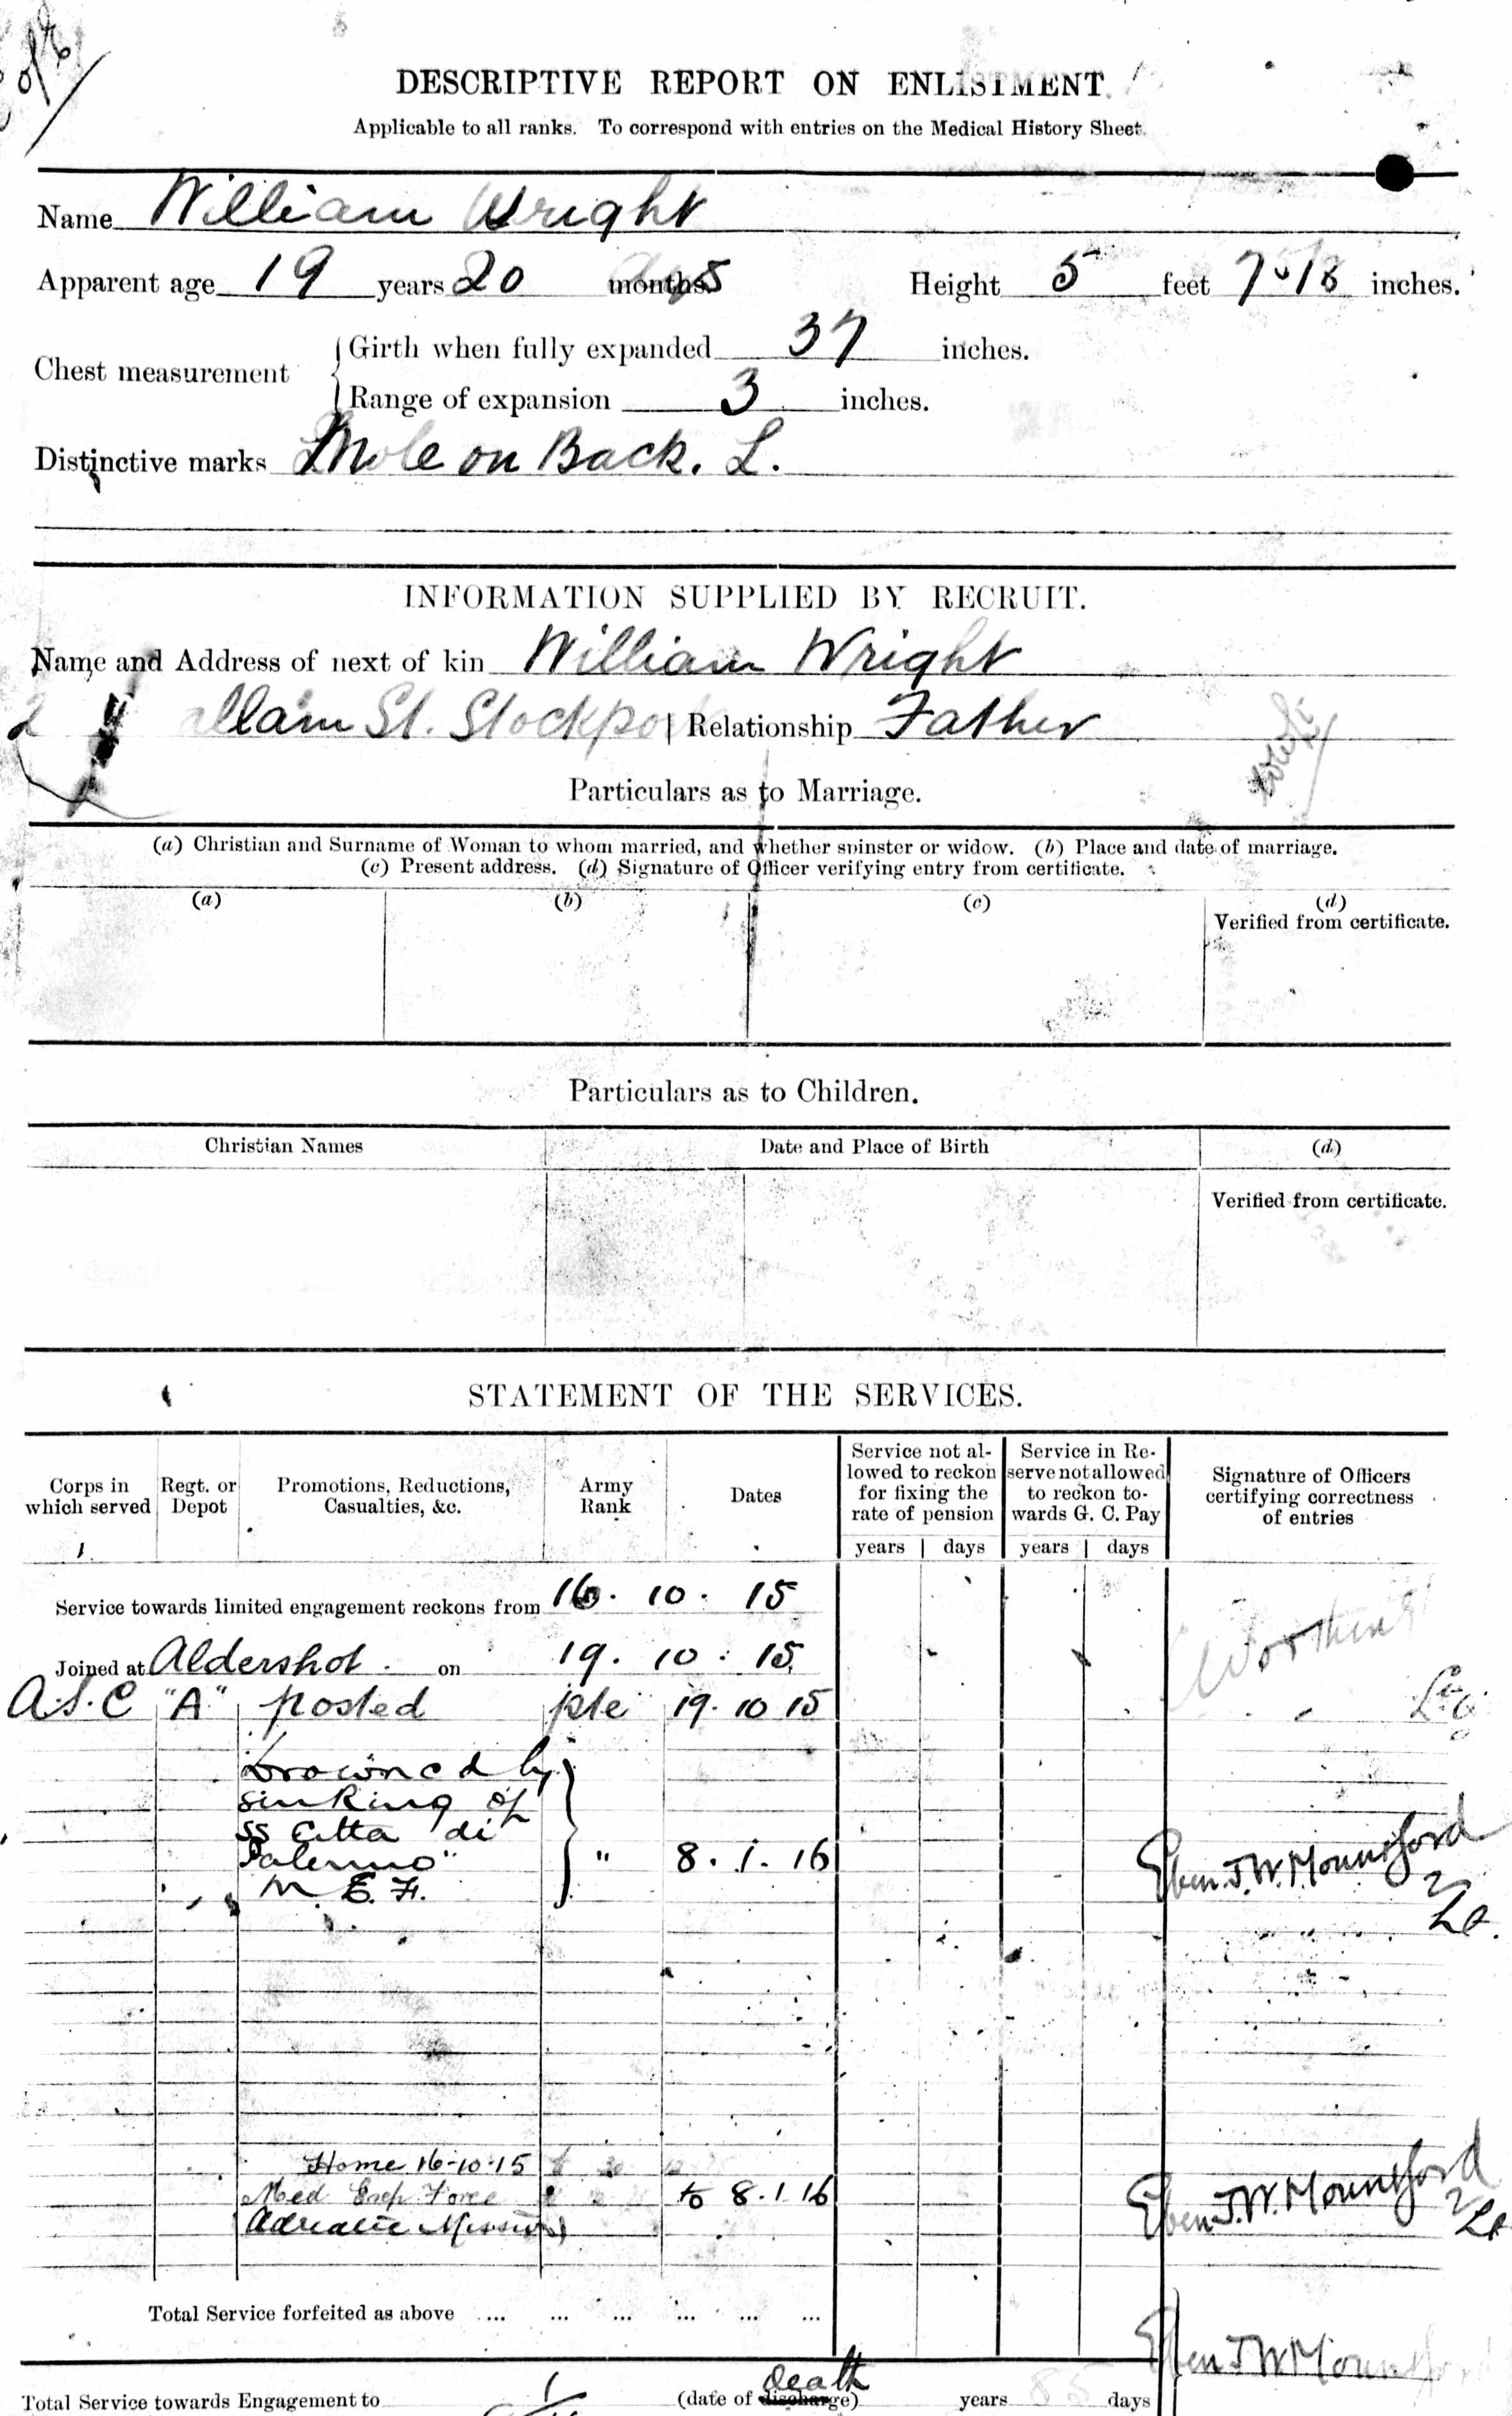 DESCRIPTIVE REPORT ON ENLISTMENT.
Applicable to all ranks. To correspond with entries on the Medical History Sheet.
Name William Wright
Apparent age 19 years 20 months days Height 5 feet inches.
Chest measurement { Girth when fully expanded 37 inches.
Range of expansion 3 inches.
Distinctive marks Mole on Back. L.
INFORMATION SUPPLIED BY RECRUIT.
Name and Address of next of kin William Wright
St. Stockport | Relationship Father
Particulars as to Marriage.
(a) Christian and Surname of Woman to whom married, and whether spinster or widow. (b) Place and date of marriage.
(c) Present address. (d) Signature of Officer verifying entry from certificate.
(a) (b) (c) (d)
Verified from certificate.
Particulars as to Children.
Christian Names Date and Place of Birth (d)
Verified from certificate.
STATEMENT OF THE SERVICES.
Corps in which served Regt. or Depot Promotions, Reductions, Casualties, &c. Army Rank Dates Service not allowed to reckon for fixing the rate of pension Service in Reserve not allowed to reckon towards G. C. Pay Signature of Officers certifying correctness of entries
years days years days
Service towards limited engagement reckons from 16. 10. 15
Joined at Aldershot. on 19. 10. 15
A.S.C "A" posted pte 19. 10 15
Drowned by
sinking of
SS Citta di
Palermo" " 8. 1. 16 Eben. J. W. Mountford
M. E. F. 2 Lt.
Home 16-10-15
Med Exp Force to 8.1.16 Eben J. W. Mountford
Adriatic Mission) 2 Lt
Total Service forfeited as above ... ... ... ... ... ...
Eben J W Mountford
death
Total Service towards Engagement to (date of discharge) years 85 days